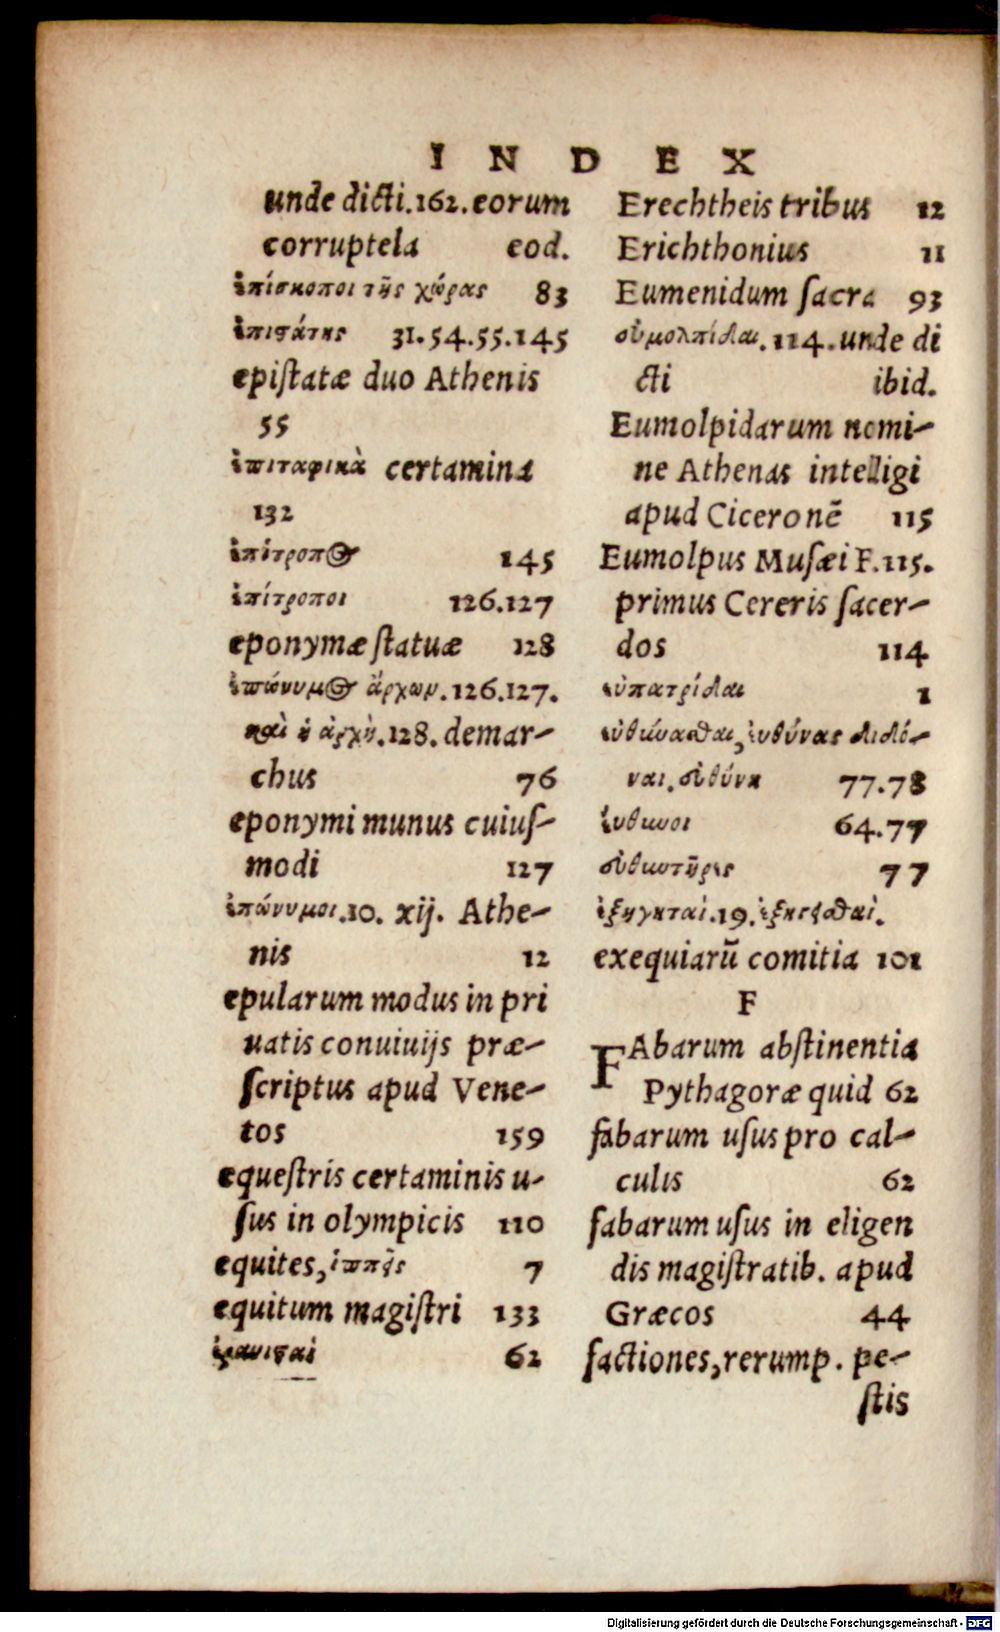 INDEX
unde dicti.162.eorum
corruptela eod.
ἐπίσκοποι τῆς χώρας 83
ἐπιστάτης 31.54.55.145
epiſtatæ duo Athenis
55
ἐπιταφικὰ certamina
132
ἐπίτροπος 145
ἐπίτροποι 126.127
eponymæ ſtatuæ 128
ἐπώνυμος ἄρχων.126.127.
καὶ ἡ ἀρχὴ.128. demar-
chus 76
eponymi munus cuiuſ-
modi 127
ἐπώνυμοι.10. xij. Athe-
nis 12
epularum modus in pri
uatis conuiuijs præ-
ſcriptus apud Vene-
tos 159
equeſtris certaminis u-
ſus in olympicis 110
equites, ἱππῆς 7
equitum magiſtri 133
ἐρανισταὶ 62
Erechtheis tribus 12
Erichthonius 11
Eumenidum ſacra 93
εὐμολπίδαι.114.unde di
cti ibid.
Eumolpidarum nomi-
ne Athenas intelligi
apud Ciceronē 115
Eumolpus Muſæi F.115.
primus Cereris ſacer-
dos 114
εὐπατρίδαι 1
εὐθύναςθαι, εὐθύνας διδό-
ναι. εὐθύνη 77.78
εὔθυνοι 64.77
εὐθυντῆρες 77
ἐξηγηταὶ.19.
exequiarū comitia 101
F
FAbarum abſtinentia
Pythagoræ quid 62
fabarum uſus pro cal-
culis 62
fabarum uſus in eligen
dis magiſtratib. apud
Græcos 44
factiones, rerump. pe-
ſtis
Digitalisierung gefördert durch die Deutsche Forschungsgemeinschaft - DFG